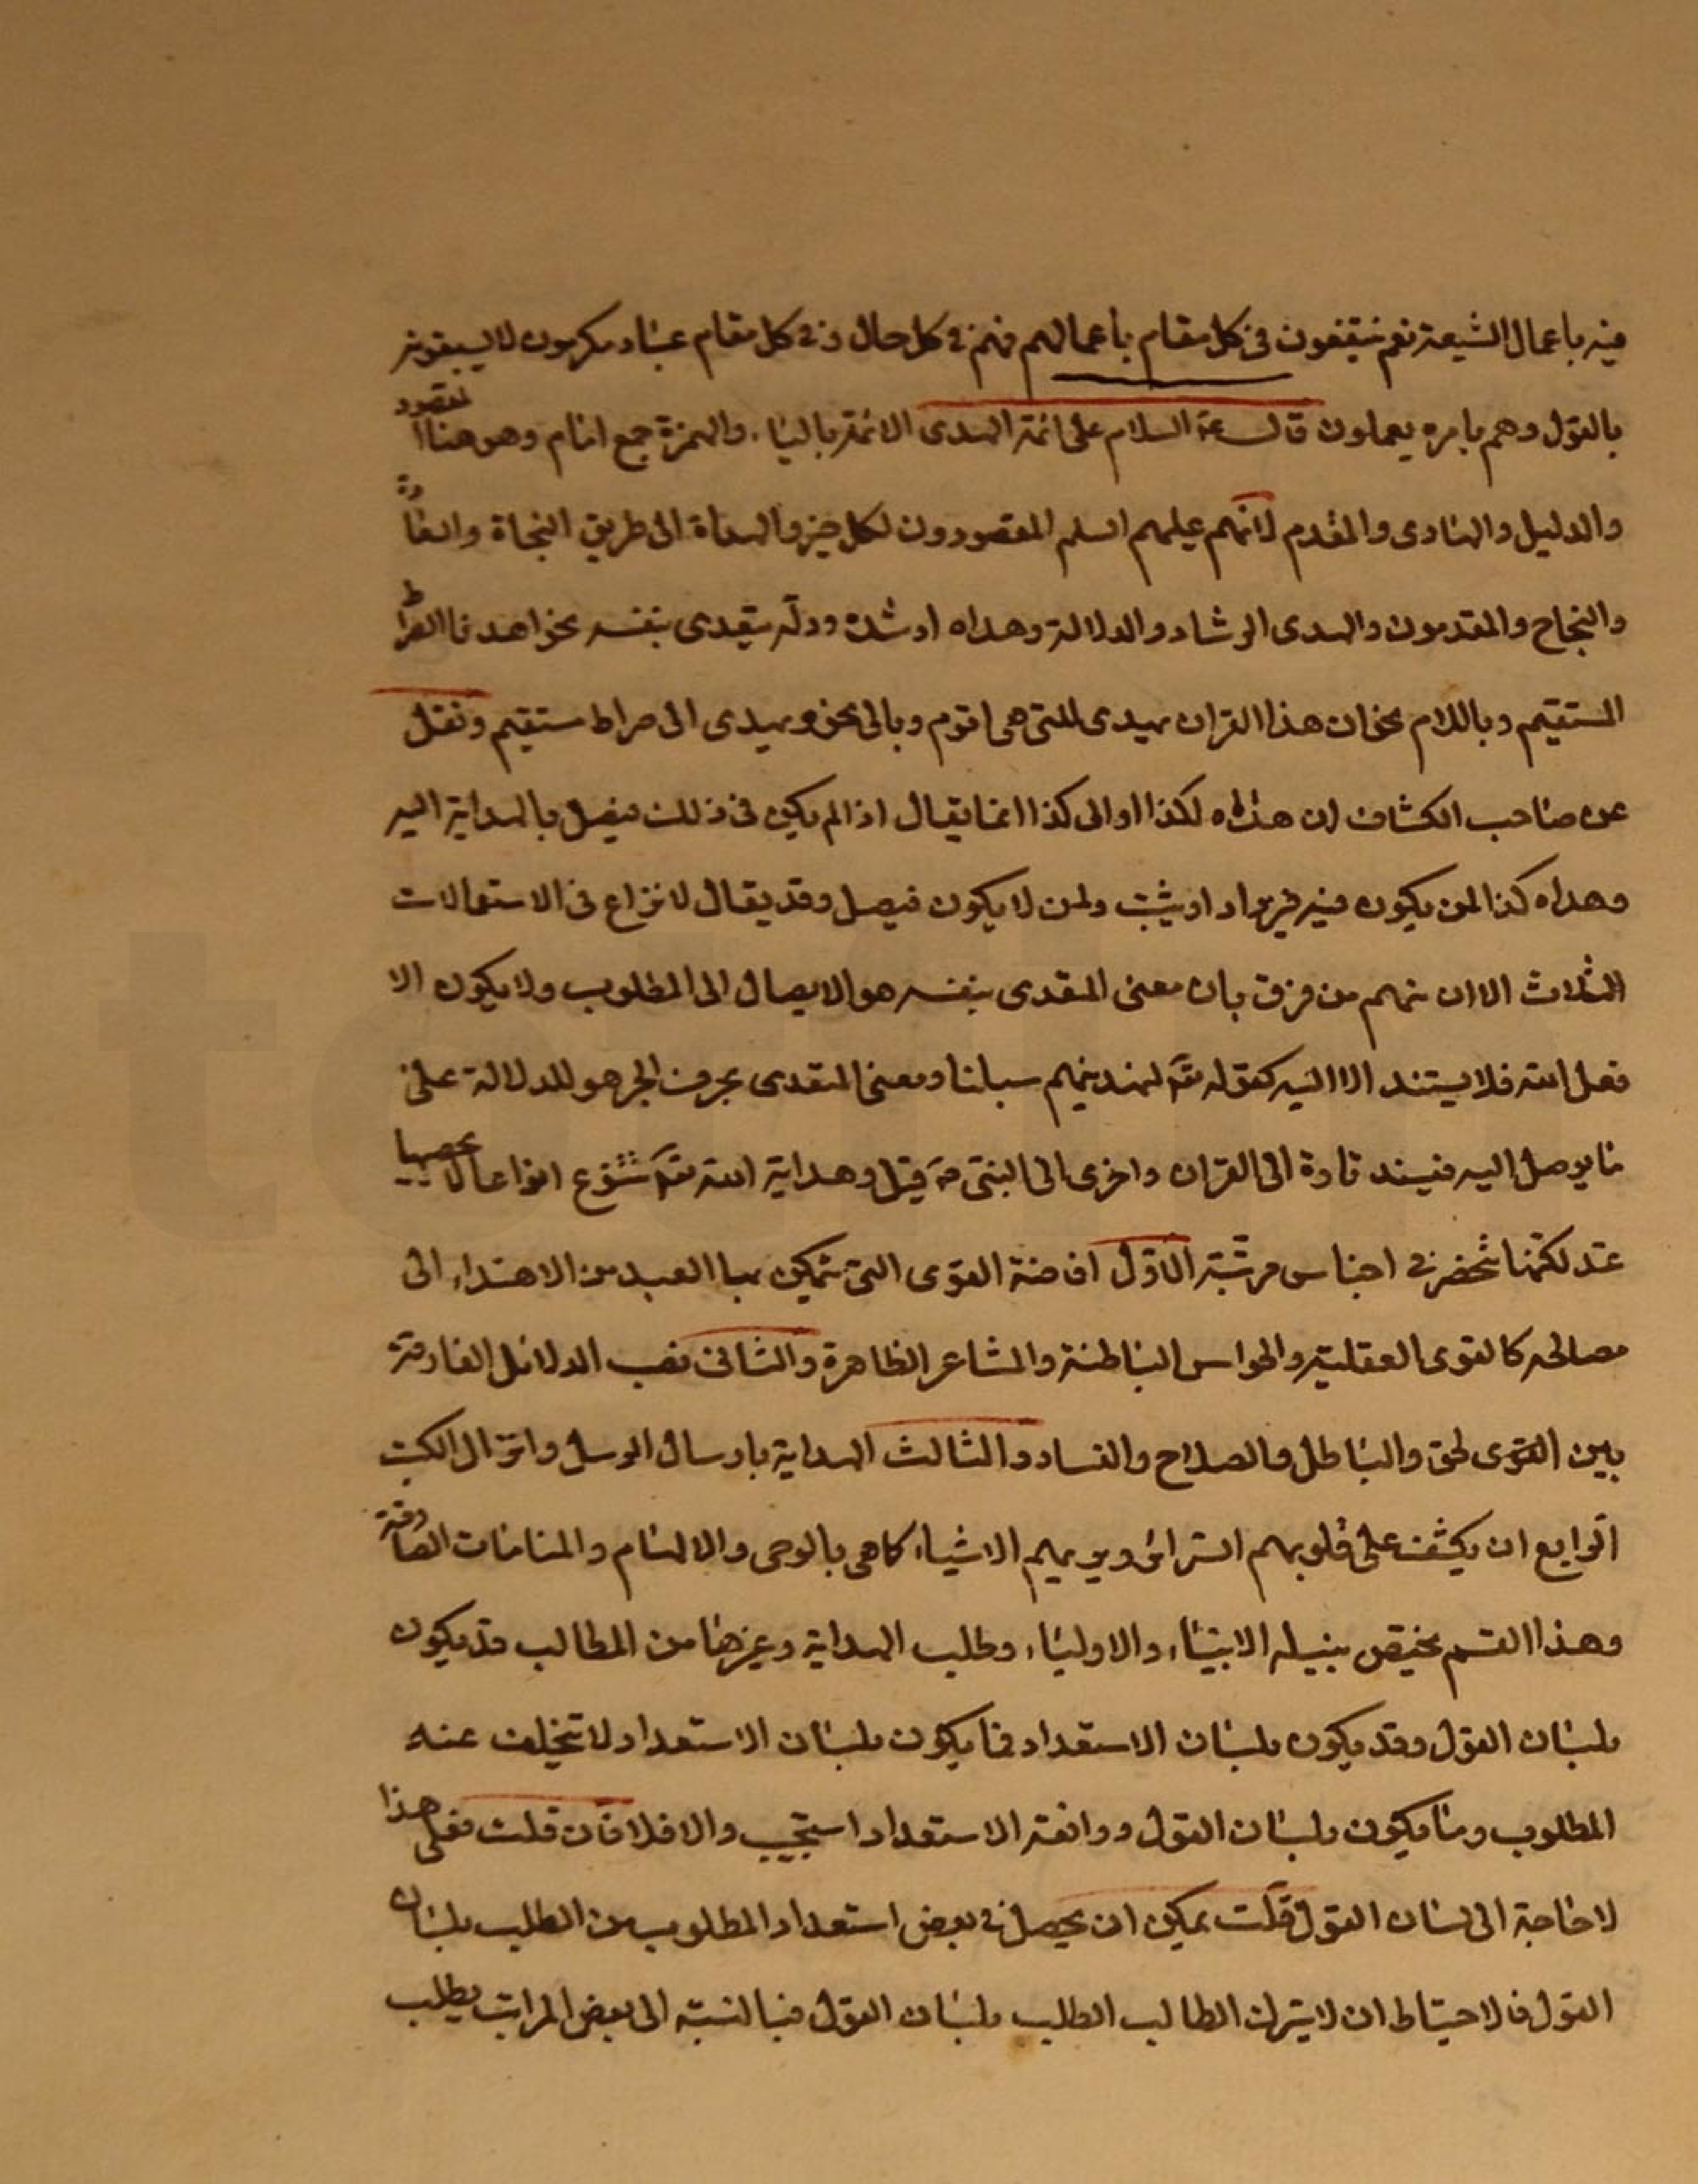 فيه باعمال الشيعة نعم ينتفعون في كل مقام باعمالهم فهم في كل حال و في كل مقام عباد مكرمون لا يسبقونه
بالقول وهم بامره يعملون قال ع السلام على ائمة الهدى الائمة بالياء والهمزة جمع امام وهو هنا المقصود
والدليل والهادى والمقدم لانهم عليهم السلم المقصودون لكل خير والهداة الى طريق النجاة والقادة
والنجاح والمقدمون والهدى الرشاد والدلالة وهداه ارشده ودله يتعدى بنفسه نحو اهدنا الصراط
المستقيم وباللام نحو ان هذا القران يهدى للتى هى اقوم وبالى نحو ويهدى الى صراط مستقيم ونقل
عن صاحب الكشاف ان هداه لكذا او الى كذا انما يقال اذا لم يكن فى ذلك فيصل بالهداية اليه
وهداه كذا لمن يكون فيه فيزداد او يثبت ولمن لا يكون فيصل وقد يقال لا نزاع فى الاستعمالات
الثلاث الا ان منهم من فرق بان معنى المتعدى بنفسه هو الايصال الى المطلوب ولا يكون الا
فعل الله فلا يستند الا اليه كقوله تع لنهدينهم سبلنا ومعنى المتعدى بحرف الجر هو للدلالة على
ما يوصل اليه فيسند تارة الى القران واخرى الى النبى ص قيل وهداية الله تع تتنوع انواعا لا يحصيها
عد لكنها تنحصر في اجناس مرتبة الاول افاضة القوى التى يتمكن بها العبد من الاهتداء الى
مصالحه كالقوى العقلية والحواس الباطنة والمشاعر الظاهرة والثانى نصب الدلائل الفارقة
بين الحق والباطل والصلاح والفساد والثالث الهداية بارسال الرسل وانزال الكتب
الرابع ان يكشف على قلوبهم السرائر ويريهم الاشياء كما هى بالوحى والالهام والمنامات الصادقة
وهذا القسم يختص بنيله الانبياء والاولياء وطلب الهداية وغيرها من المطالب قد يكون
بلسان القول وقد يكون بلسان الاستعداد فما يكون بلسان الاستعداد لا يتخلف عنه
المطلوب وما يكون بلسان القول ووافقه الاستعداد استجيب والا فلا فان قلت فعلى هذا
لا حاجة الى لسان القول قلت يمكن ان يحصل في بعض استعداد المطلوب من الطلب بلسان
القول فالاحتياط ان لا يترك الطالب الطلب بلسان القول فبالنسبة الى بعض المراتب يطلب